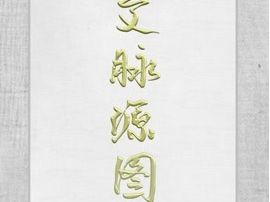 文脉源图